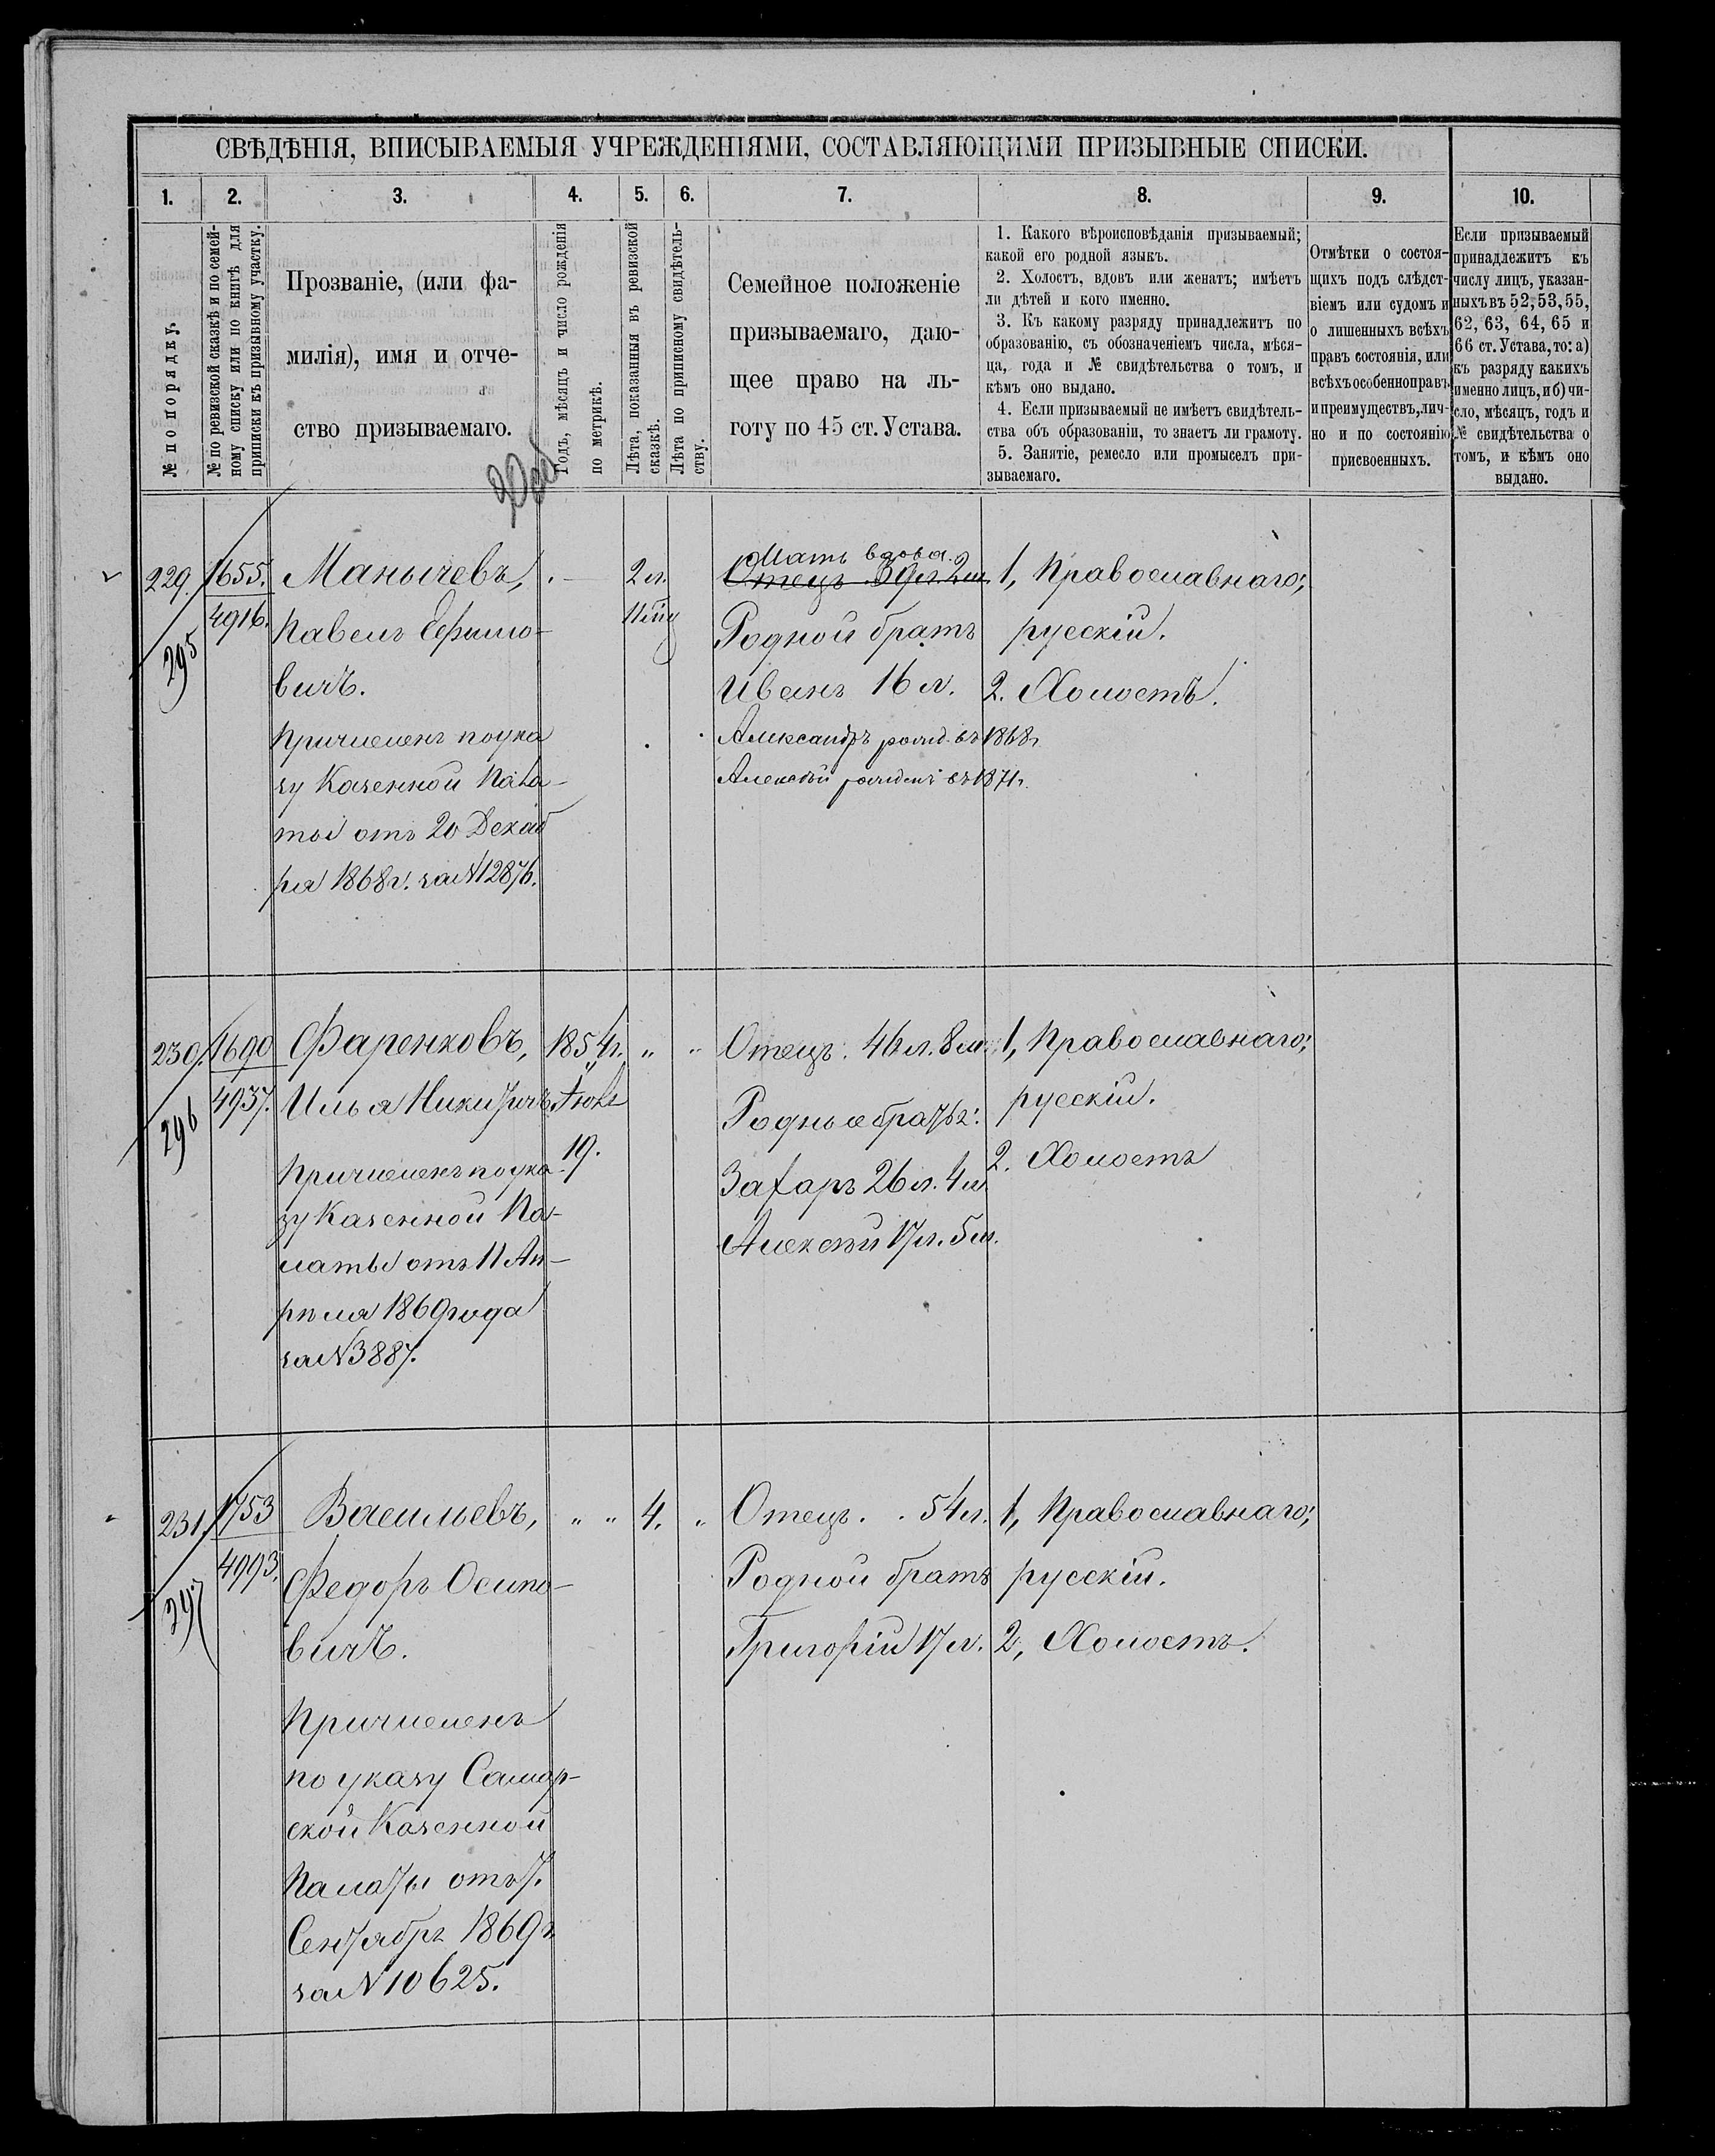 СВѢДѢНІЯ, ВПИСЫВАЕМЫЯ УЧРЕЖДЕНІЯМИ, СОСТАВЛЯЮЩИМИ ПРИЗЫВНЫЕ СПИСКИ.
1.
2.
3.
4.
5.
6.
7.
8.
9.
10.
№ по порядку.
№ по ревизской сказкѣ и по семей-
ному списку или по книгѣ для
приписки къ призывному участку.
Прозваніе, (или фа-
милія), имя и отче-
ство призываемаго.
Годъ, мѣсяцъ и число рожденія
по метрикѣ.
Лѣта, показанныя въ ревизской
сказкѣ.
Лѣта по приписному свидѣтель-
ству.
Семейное положеніе
призываемаго, даю-
щее право на ль-
готу по 45 ст. Устава.
1. Какого вѣроисповѣданія призываемый;
какой его родной языкъ.
2. Холостъ, вдовъ или женатъ; имѣетъ
ли дѣтей и кого именно.
3. Къ какому разряду принадлежитъ по
образованію, съ обозначеніемъ числа, мѣся-
ца, года и № свидѣтельства о томъ, и
кѣмъ оно выдано.
4. Если призываемый не имѣетъ свидѣтель-
ства объ образованіи, то знаетъ ли грамоту.
5. Занятіе, ремесло или промыселъ при-
зываемаго.
Отмѣтки о состоя-
щихъ подъ слѣдст-
віемъ или судомъ и
о лишенныхъ всѣхъ
правъ состоянія, или
всѣхъ особенно правъ
и преимуществъ, лич-
но и по состоянію
присвоенныхъ.
Если призываемый
принадлежитъ къ
числу лицъ, указан-
ныхъ въ 52, 53, 55,
62, 63, 64, 65 и
66 ст. Устава, то: а)
къ разряду какихъ
именно лицъ, и б) чи-
сло, мѣсяцъ, годъ и
№ свидѣтельства о
томъ, и кѣмъ оно
выдано.
229.
295
1655.
4916.
Манычевъ,
Павелъ Ефимо-
вичъ.
Причисленъ по ука
зу Казенной Пала-
ты отъ 20 Декаб
ря 1868 г. за N 12876.
2 л.
Мать вдова.
Отецъ 39 л. 2 м.
Родной братъ
Иванъ 16 л.
Александръ рожд. въ 1868 г.
Алексѣй рожденъ въ 1871 г.
1, Православнаго;
русскій.
2. Холостъ.
230.
296
1690
4937.
Фаренковъ,
Илья Никитичъ
Причисленъ по ука
зу Казенной Па-
латы отъ 11 Ап-
рѣля 1869 года
за N 3887.
1854 г.
Іюля
19.
" "
Отецъ. 46 л. 8 м.
Родные братья:
Захаръ 26 л. 4 м.
Алексѣй 17 л. 5 м.
1, Православнаго;
русскій.
2. Холостъ
231.
297
1753
4993.
Васильевъ,
Федоръ Осипо-
вичъ.
Причисленъ
по указу Самар-
ской Казенной
Палаты отъ 7.
Сентября 1869 г
за N 10625.
" " 4. "
Отецъ. . 54 л.
Родной братъ
Григорій 17 л.
1, Православнаго;
русскій.
2, Холостъ.